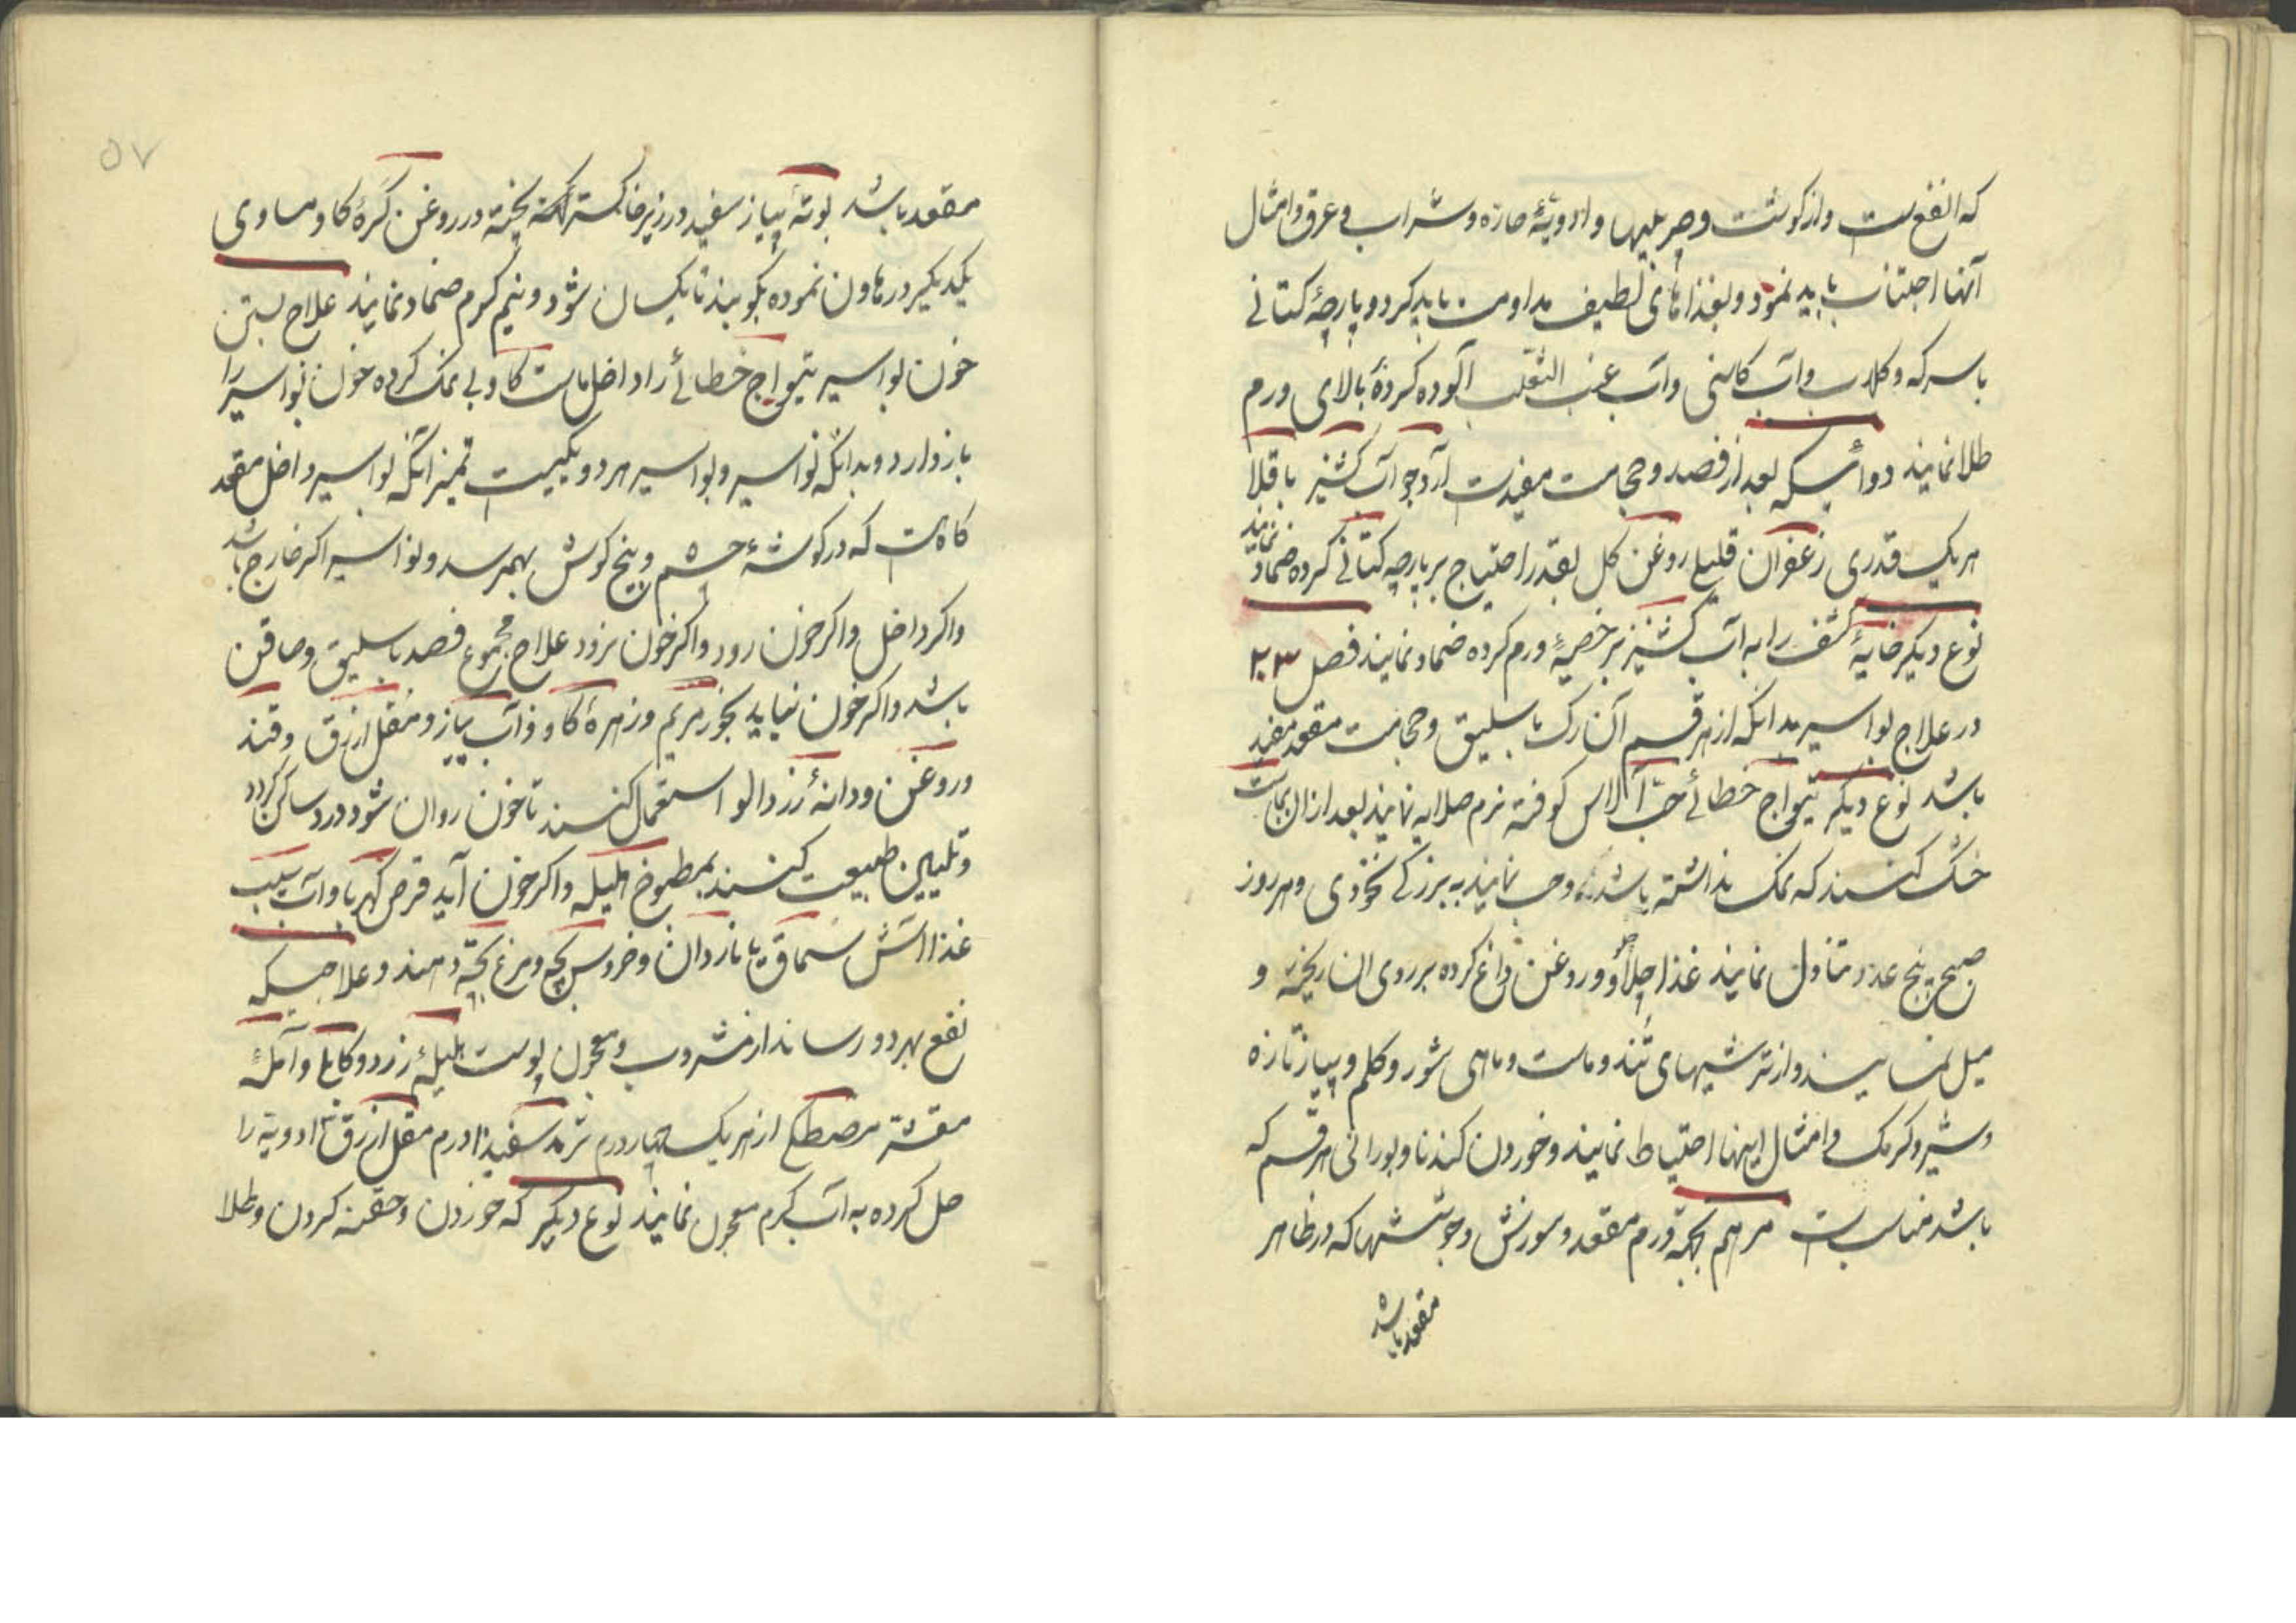 که انفع ست و از کوشت و چربیها و ادویهٔ حارّه و شراب و عرق و امثال
آنها اجتناب باید نمود و بغذاهای لطیف مداومت باید کرد و پارچهٔ کتانی
با سرکه و کلاب و آب کاسنی و آب عنب الثعلب آلوده کرده بالای ورم
طلا نمایند دوائیکه بعد از فصد و حجامت مفیدست آرد جو آب کشنیز باقلا
هر یک قدری زعفران قلیلی روغن کل بقدر احتیاج بر پارچه کتانی کرده ضماد نمایند
نوع دیکر خایهٔ کشف را به آب کشنیز بر خصیهٔ ورم کرده ضماد نمایند فصل ۲۳
در علاج بواسیر بدانکه از هر قسم آن رک باسلیق و حجامت مقعد مفید
باشد نوع دیکر تیواج خطائی حبّ الآس کوفته نرم صلایه نمایند بعد از ان بماست
خشک کنند که نمک نداشته باشد و حب نمایند به بزرکی نخودی و هر روز
صبح پنج عدد تناول نمایند غذا چلاو و روغن داغ کرده بر روی ان ریخته و
میل نمایند و از ترشیهای تند و ماست و ماهی شور و کلم و پیاز تازه
و شیر و کرمک و امثال اینها احتیاط نمایند و خوردن کندنا و بورانی هر قسم که
باشد مناسب است مرهم بجهة ورم مقعد و سوزش و جوششها که در ظاهر
مقعد باشد
۵۷
مقعد باشد بوتهٔ پیاز سفید در زیر خاکستر پخته در روغن کرهٔ کاو مساوی
یکدیکر در هاون نموده بکوبند تا یکسان شود و نیم کرم ضماد نمایند علاج بستن
خون بواسیر تیواج خطائی را داخل ماست کاو بی نمک کرده خون بواسیر را
باز دارد و بدانکه نواسیر و بواسیر هر دو یکیست تمیز آنکه بواسیر داخل مقعد
کاه است که در کوشهٔ چشم و بیخ کوش بهمرسد و نواسیر اکر خارج باشد
و اکر داخل و اکر خون رود و اکر خون نرود علاج مجموع فصد باسلیق و صافن
باشد و اکر خون نیاید بخور مریم و زهرهٔ کاو و آب پیاز و مقل ازرق و قند
و روغن و دانهٔ زردالو استعمال کنند تا خون روان شود و درد ساکن کردد
و تلیین طبیعت کنند بمطبوخ هلیله و اکر خون آید قرص کهربا و آب سیب
غذا آش سماق با ناردان و خروس بچه و مرغ بچه دهند و علاجیکه
نفع بهر دو رساند از مشروب و معجون پوست هلیلهٔ زرد و کابلی و آملهٔ
مقشّر مصطکی از هر یک چهار درم تربد سفید ۱۰ درم مقل ازرق ادویة را
حل کرده به آب کرم معجون نمایند نوع دیکر که خوردن و حقنه کردن و طلا